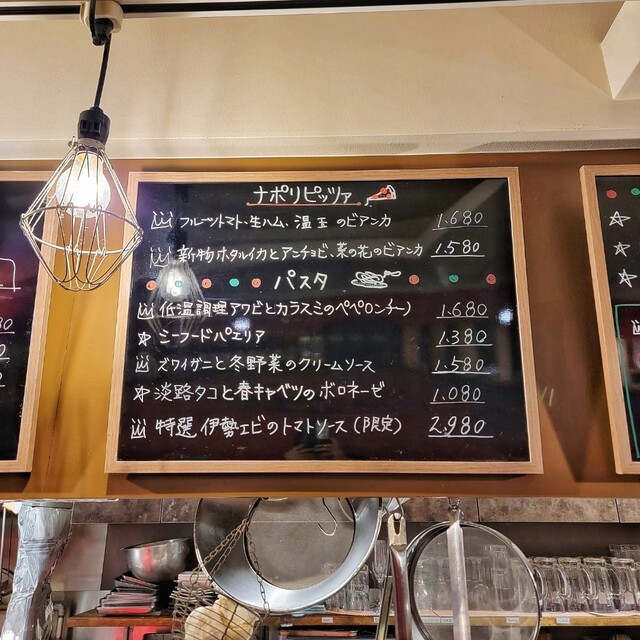 ナポリピッツァ
フルーツトマト・生ハム、温玉のビアンカ 1.680
新物ホタルイカとアンチョビ、菜の花のビアンカ 1.580
パスタ
低温調理アワビとカラスミのペペロンチーノ 1.680
シーフードパエリア 1.380
ズワイガニと冬野菜のクリームソース 1.580
淡路タコと春キャベツのボロネーゼ 1.080
特選 伊勢エビのトマトソース(限定) 2.980